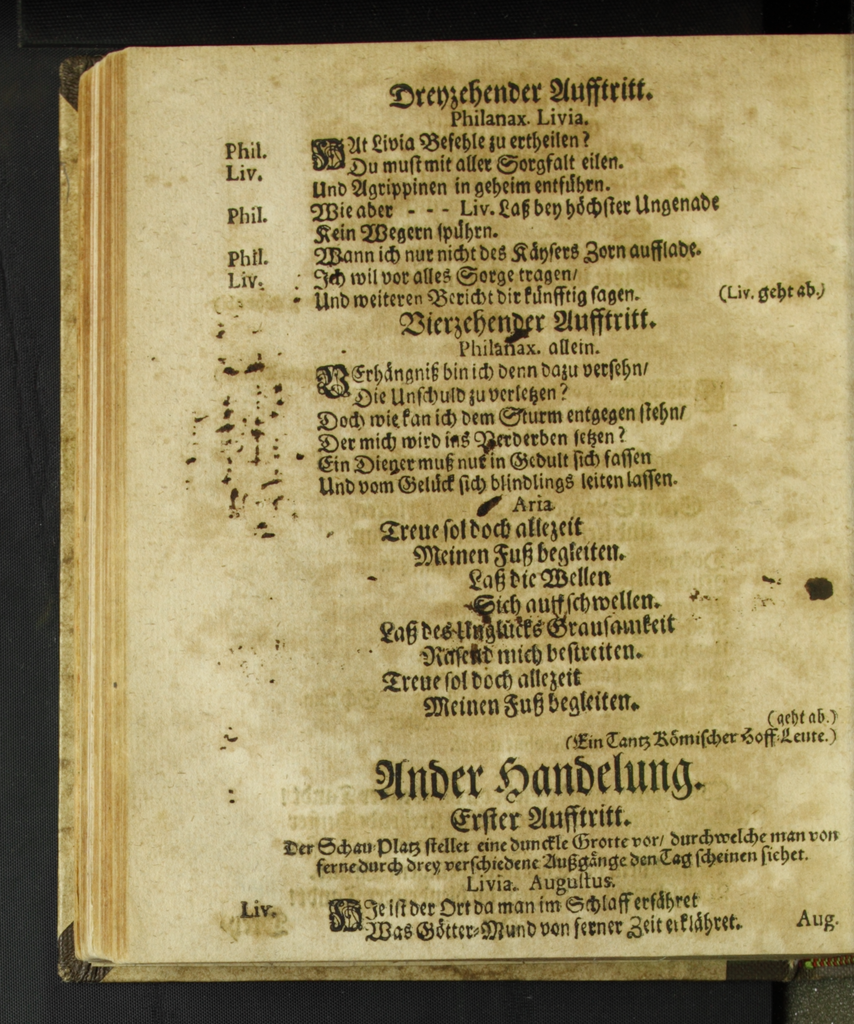 Dreyzehender Aufftritt.
Philanax. Livia.
Phil. HAt Livia Befehle zu ertheilen?
Liv. Du must mit aller Sorgfalt eilen.
Und Agrippinen in geheim entführn.
Phil. Wie aber - - - Liv. Laß bey höchster Ungenade
Kein Wegern spührn.
Phil. Wann ich nur nicht des Käysers Zorn aufflade.
Liv. Ich wil vor alles Sorge tragen/
Und weiteren Bericht dir künfftig sagen. (Liv. geht ab.)
Vierzehender Aufftritt.
Philanax. allein.
VErhängniß bin ich denn dazu versehn/
Die Unschuld zu verletzen?
Doch wie kan ich dem Sturm entgegen stehn/
Der mich wird ins Verderben setzen?
Ein Diener muß nur in Gedult sich fassen
Und vom Gelück sich blindlings leiten lassen.
Aria
Treue sol doch allezeit
Meinen Fuß begleiten.
Laß die Wellen
Sich auff schwellen.
Laß des Unglücks Grausamkeit
Rasend mich bestreiten.
Treue sol doch allezeit
Meinen Fuß begleiten.
(geht ab.)
(Ein Tantz Römischer Hoff-Leute.)
Ander Handelung.
Erster Aufftritt.
Der Schau-Platz stellet eine dunckle Grotte vor/ durch welche man von
ferne durch drey verschiedene Außgänge den Tag scheinen siehet.
Livia. Augustus.
Liv. HIe ist der Ort da man im Schlaff erfähret
Was Götter-Mund von ferner Zeit erklähret.
Aug.